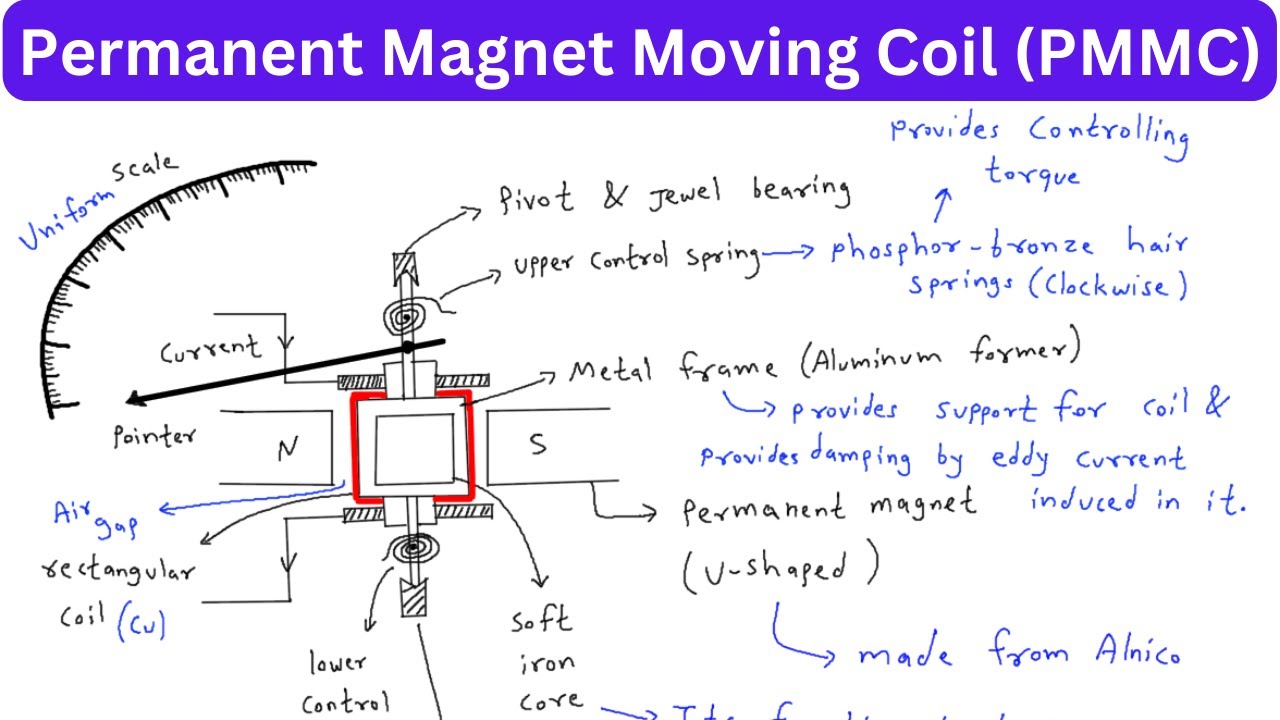 Permanent Magnet Moving Coil (PMMC)
Provides Controlling
torque
Uniform scale
Pivot & Jewel bearing
upper control spring
phosphor-bronze hair
springs (Clockwise)
Current
Metal frame (Aluminum former)
provides support for coil &
provides damping by eddy current
induced in it.
Pointer
N
S
Air gap
Permanent magnet
(U-shaped)
rectangular
coil (Cu)
made from Alnico
soft
iron
core
lower
control